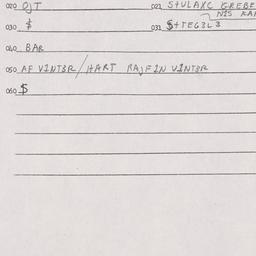 020 OJT 021 STULAXC GREBE
NIS
030 $ 031 $+TEG3L3
040 BAR
050 AF VINT3R/HART RAJFIN VINT3R
060 $